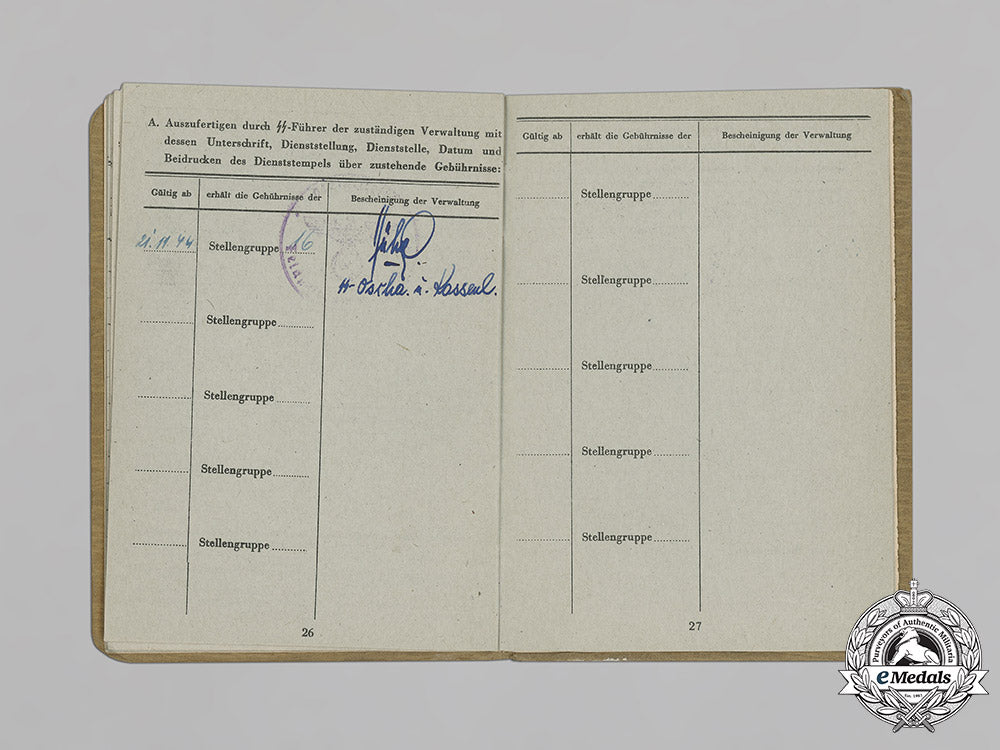 A. Auszufertigen durch ᛋᛋ-Führer der zuständigen Verwaltung mit
dessen Unterschrift, Dienststellung, Dienststelle, Datum und
Beidrucken des Dienststempels über zustehende Gebührnisse:
Gültig ab erhält die Gebührnisse der Bescheinigung der Verwaltung
21.11.44 Stellengruppe 16
ᛋᛋ-Oscha. u. Kassenl.
Stellengruppe
Stellengruppe
Stellengruppe
Stellengruppe
26
Gültig ab erhält die Gebührnisse der Bescheinigung der Verwaltung
Stellengruppe
Stellengruppe
Stellengruppe
Stellengruppe
Stellengruppe
27
Purveyors of Authentic Militaria
eMedals